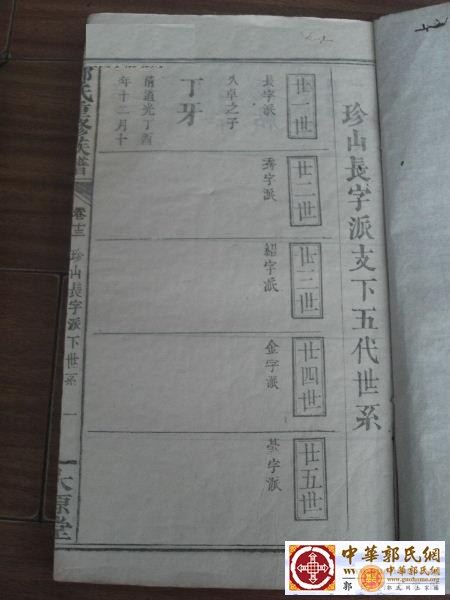 珍山長字派支下五代世系
廿一世
長字派
久卓之子
丁牙
前道光丁酉
年十二月十
廿二世
秀字派
廿三世
紹字派
廿四世
金字派
廿五世
字派
氏重修族譜
卷十三
珍山長字派下世系
一
太原堂
中華郭氏網
郭
中華郭氏網
www.guoname.org